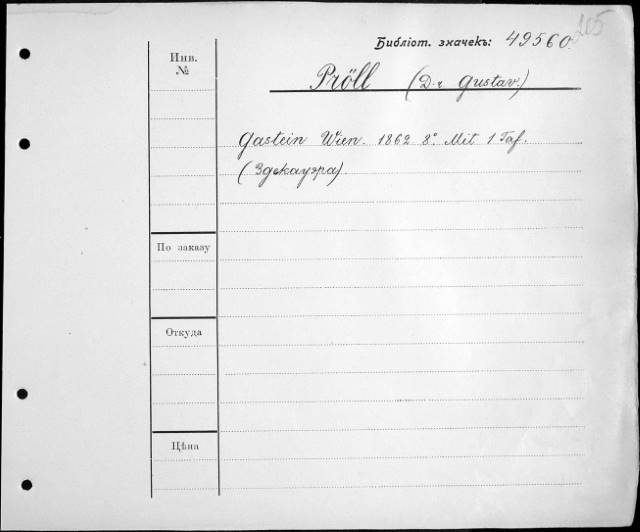 205
Библіот. значекъ: 49560.
Инв.
№
Pröll (D-r Gustav.)
Gastein Wien. 1862 8°. Mit 1 Taf.
(Здекауэра).
По заказу
Откуда
Цѣна